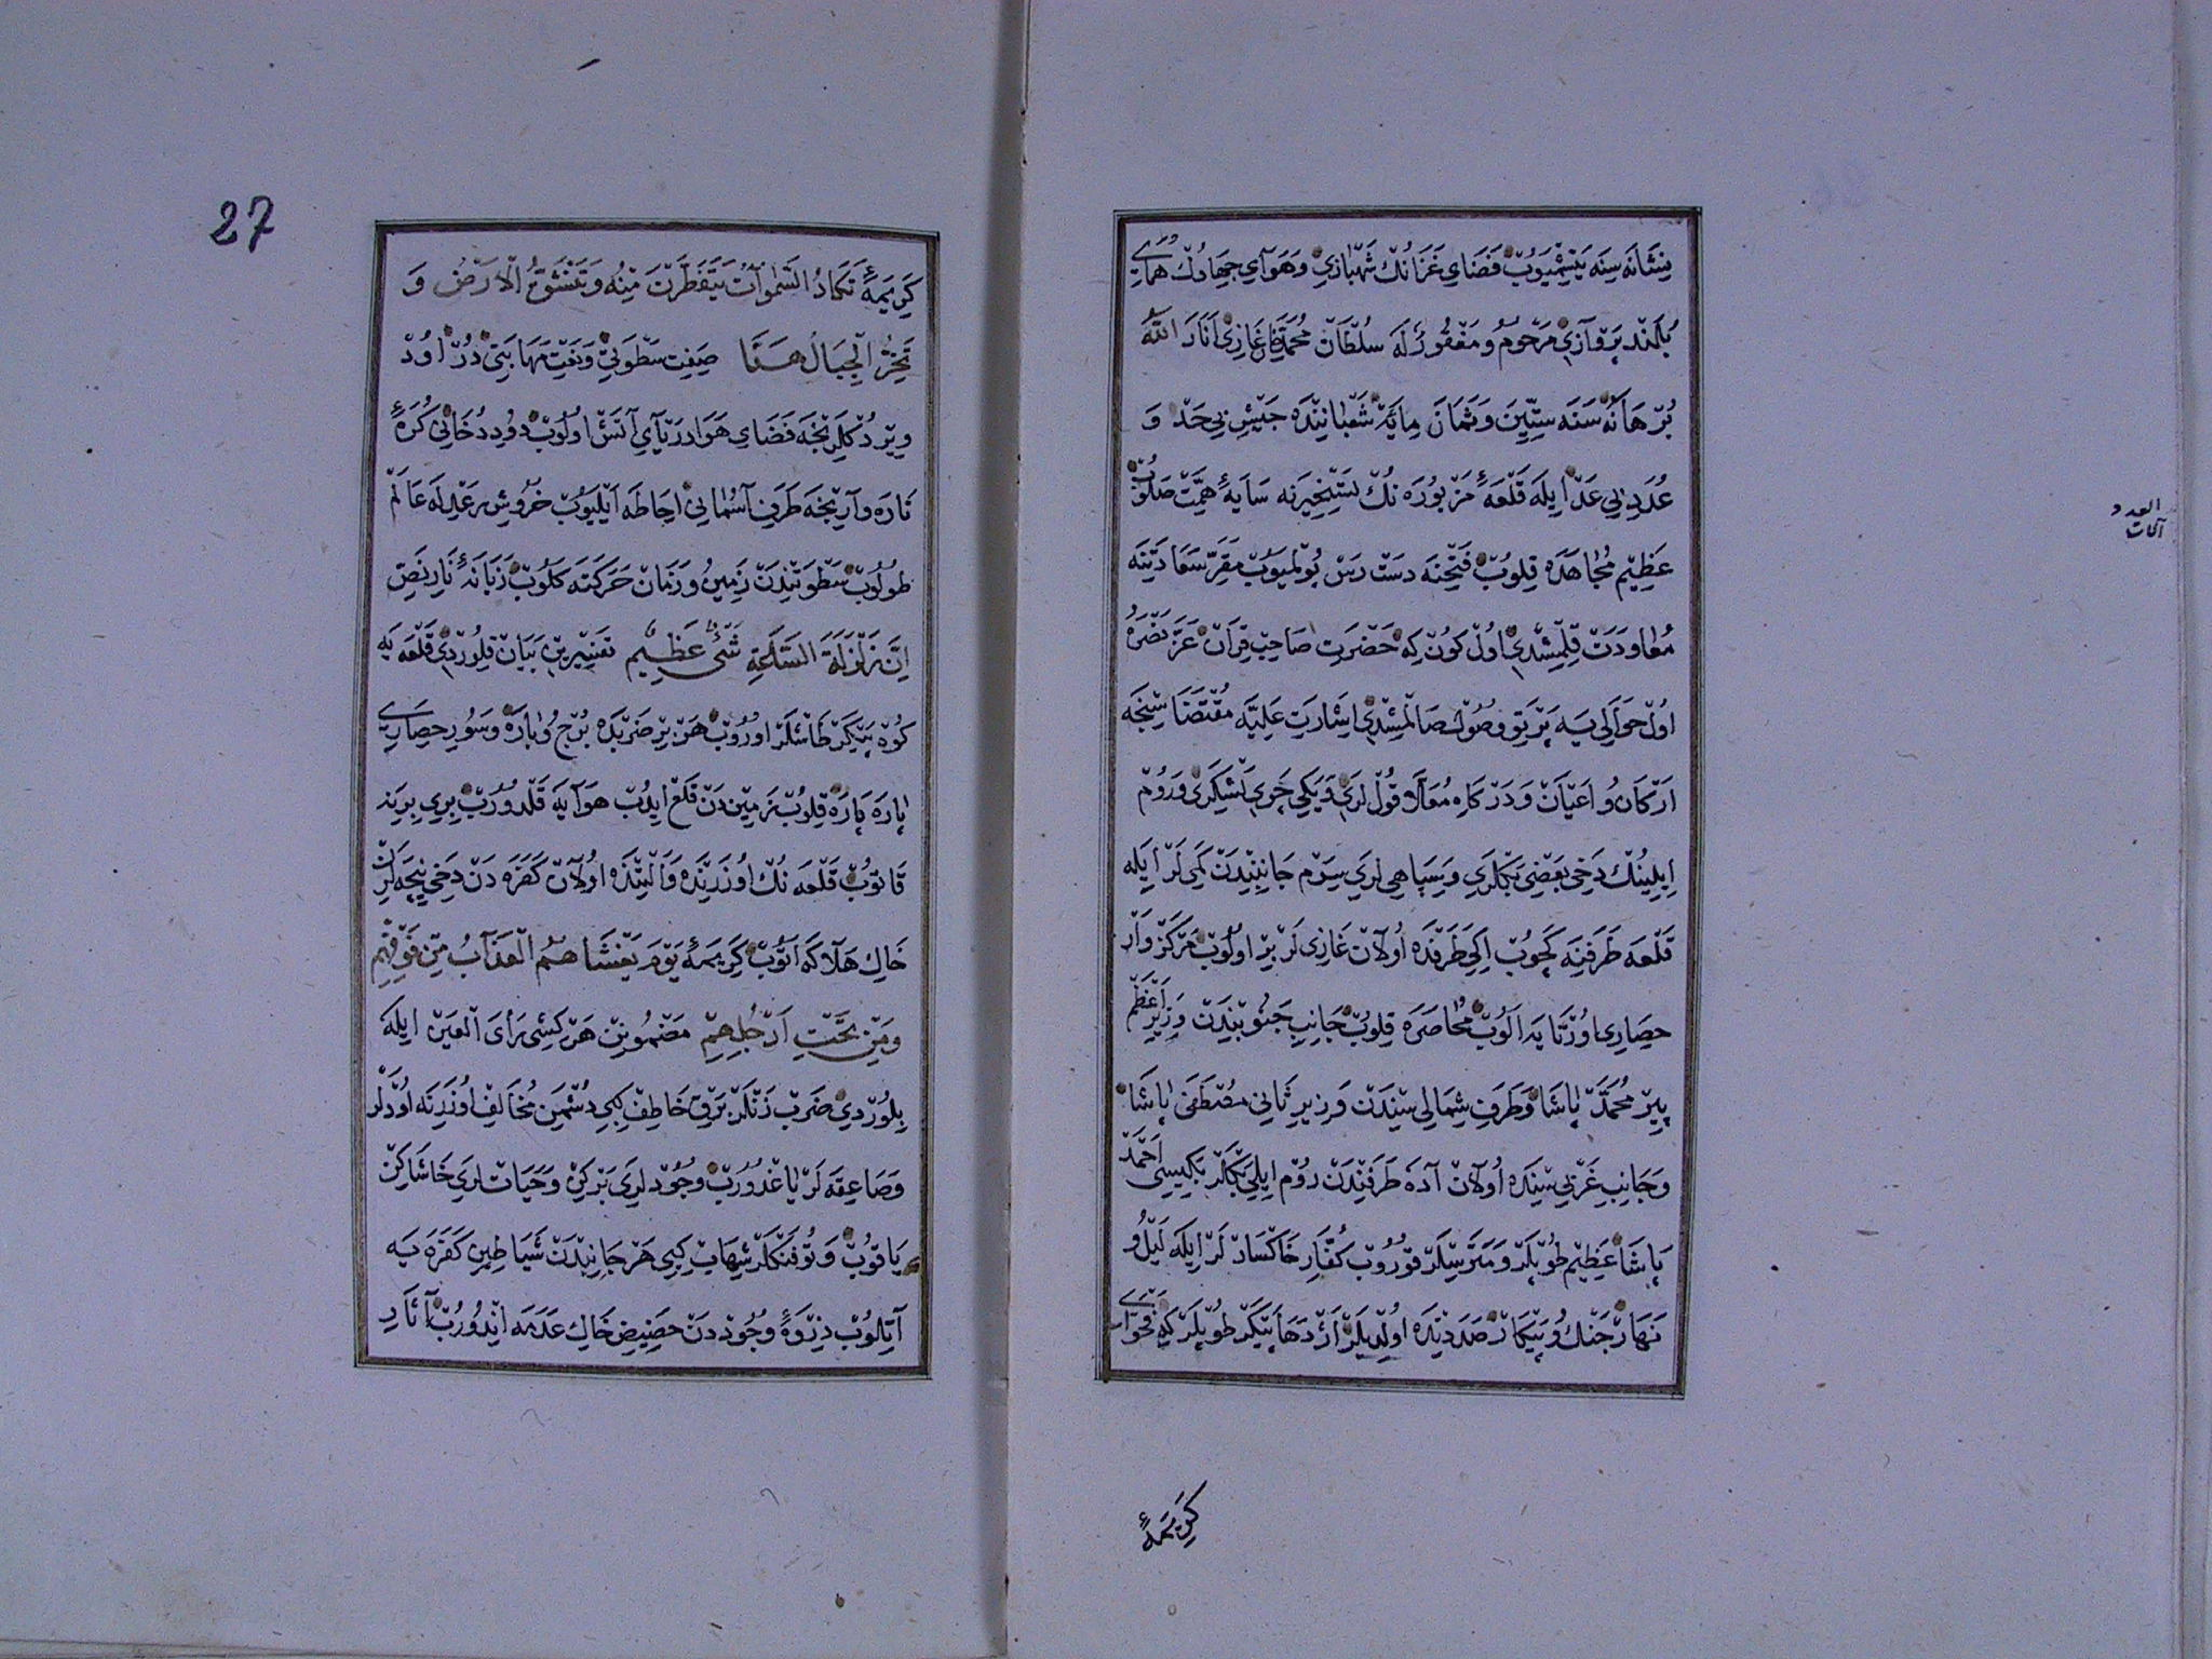 نِشَانَه سِنَه يَتِشْمَيُوبْ فَضَاىِ غَزَانُكْ شَهْبَازِي وَهَوَاىِ جِهَادُكْ هُمَاىِ
بُلَنْد پَرْوَازِي مَرْحُوم وَمَغْفُورٌ لَهُ سُلْطَانْ مُحَمَّدْ خَانِ غَازِي اَنَارَ اللّٰهُ
بُرْهَانَهُ سَنَه سِتِّينَ وَثَمَانَ مِايَهْ شَعْبَانِنْدَه جَيْشِ بِى حَدّ وَ
عُدَدِ بِى عَدّ اِيلَه قَلْعَهٔ مَزْبُورَه نُكْ تَسْخِيرِنَه سَايَهٔ هِمَّتْ صَلُوبْ
عَظِيمْ مُجَاهَدَه قِلُوبْ فَتْحِنَه دَسْت رَسْ بُولْمَيُوبْ مَقَرِّ سَعَادَتِنَه
مُعَاوَدَتْ قِلْمِشْدِي اُولْ كُونْ كِه حَضْرَتِ صَاحِبْ قِرَانْ عَزَّ نَصْرُهُ
اُولْ حَوَالِى يَه پَرْتَوِ وُصُولْ صَالْمِشْدِي اِشَارَتِ عَلِيَّه مُقْتَضَاسِنْجَه
اَرْكَان وُ اَعْيَانْ وَدَرْكَاهِ مُعَلَّا قُولْلَرِي وَيَكِى چَرِي لَشْكَرِي وَرُومْ
اِيلِينُكْ دَخِى بَعْضِى بَكْلَرِي وَسِپَاهِى لَرِي سِرَمْ جَانِبِنْدَنْ كَمِى لَرْ اِيلَه
قَلْعَه طَرَفِنَه كَچُوبْ اِكِى طَرَفْدَه اُولَانْ غَازِى لَرْ بِرْ اُولُوبْ مَرْكَزْ وَارْ
حِصَارِى اُورْتَايَه اَلُوبْ مُحَاصَرَه قِلُوبْ جَانِبِ جَنُوبِنْدَنْ وَزِيرِ اَعْظَمْ
پِيرْ مُحَمَّدْ پَاشَا وَطَرَفِ شِمَالِى سِنْدَنْ وَزِيرِ ثَانِى مُصْطَفَى پَاشَا
وَجَانِبِ غَرْبِى سِنْدَه اُولَانْ آدَه طَرَفِنْدَنْ رُومْ اِيلِى بَكْلَرْ بَكِيسِى اَحْمَدْ
پَاشَا عَظِيمْ طُوپْلَرْ وَمَتَرِسْلَرْ قُورُوبْ كُفَّارِ خَاكْسَارْ لَرْ اِيلَه لَيْلُ وُ
نَهَارْ جَنْكُ وُ پَيْكَارْ صَدَدِنْدَه اُولْدِيلَرْ اَژْدَهَا پَيْكَرْ طُوپْلَرْ كِه فَحْوَاىِ
كَرِيمَهٔ
العدد
آلات
27
كَرِيمَهٔ تَكَادُ السَّمٰوَاتُ يَتَفَطَّرْنَ مِنْهُ وَتَنْشَقُّ الْاَرْضُ وَ
تَخِرُّ الْجِبَالُ هَدًّا صِفَتِ سَطْوَتِى وَنَعْتِ مَهَابَتِى دُرْ اُودْ
وِيرْدُكْلَرِنْجَه فَضَاىِ هَوَا دَرْيَاىِ آتَشْ اُولُوبْ دُودِ دُخَانِى كُرَهٔ
نَارَه وَارِنْجَه طَرَفِ آسُمَانِى اِحَاطَه اَيْلَيُوبْ خُرُوشِ رَعْدِلَه عَالَمْ
طُولُوبْ سَطْوَتِنْدَنْ زَمِينُ وَزَمَانْ حَرَكَتَه كَلُوبْ زَبَانَهٔ نَارِ نَصِّ
اِنَّ زَلْزَلَةَ السَّاعَةِ شَىْءٌ عَظِيمٌ تَفْسِيرِينْ بَيَانْ قِلُورْدِي قَلْعَه يَه
كُوهْ پَيْكَرْ طَاشْلَرْ اُورُوبْ هَرْ بِرْ ضَرْبَدَه بُرْجُ وُ بَارَه وَسُورِ حِصَارِي
پَارَه پَارَه قِلُوبْ زَمِيندَنْ قَلْع اِيدُبْ هَوَايَه قَلْدُورُبْ بِرِى بِرِينَه
قَاتُوبْ قَلْعَه نُكْ اُوزَرِنْدَه وَاَلْتِنْدَه اُولَانْ كَفَرَه دَنْ دَخِى نِيچَه لَرْ
خَاكِ هَلَاكَه اَتُوبْ كَرِيمَهٔ يَوْمَ يَغْشَاهُمُ الْعَذَابُ مِنْ فَوْقِهِمْ
وَمِنْ تَحْتِ اَرْجُلِهِمْ مَضْمُونِنْ هَرْ كَشِى رَأْىَ الْعَيْنْ اِيلَه
بِلُورْدِي ضَرْبْ زَنْلَرْ بَرْقِ خَاطِفْ كِبِى دُشْمَنِ مُخَالِفْ اُوزَرِنَه اُودْلَرْ
وَصَاعِقَه لَرْ يَاغْدُورُبْ وُجُودْلَرِى بَرْكِنْ وَحَيَاتْلَرِى خَاشَاكِنْ
يَاقُوبْ وَتُوفَنْكْلَرْ شِهَابْ كِبِى هَرْ جَانِبْدَنْ شَيَاطِينِ كَفَرَه يَه
آتِلُوبْ ذِرْوَهٔ وُجُودْدَنْ حَضِيضِ خَاكِ عَدَمَه اِنْدُورُبْ آثَارِ